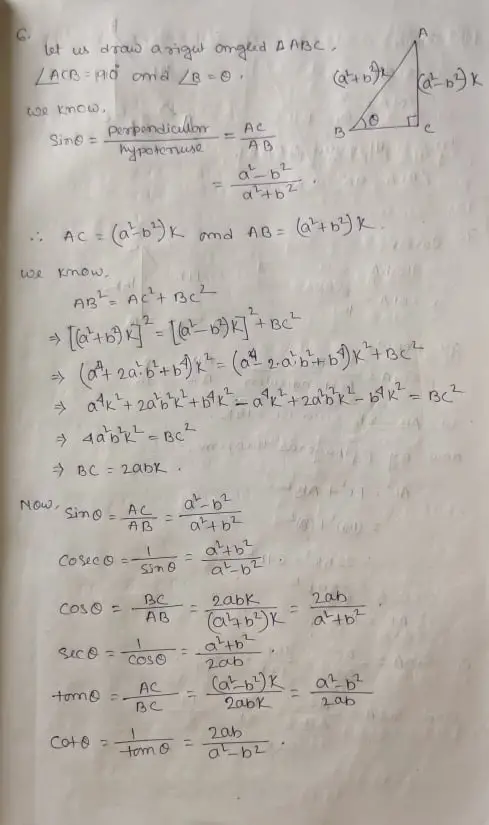 6.
Let us draw a right angled ΔABC.
∠ACB = 90° and ∠B = θ.
we know,
Sinθ = perpendicular/hypotenuse = AC/AB
= a²-b²/a²+b².
A
(a²+b²)K
(a²-b²)K
B
θ
C
∴ AC = (a²-b²)K and AB = (a²+b²)K.
we know,
AB² = AC² + BC²
⇒ [(a²+b²)K]² = [(a²-b²)K]² + BC²
⇒ (a⁴+2a²·b²+b⁴)K² = (a⁴-2·a²·b²+b⁴)K² + BC²
⇒ a⁴K²+2a²b²K²+b⁴K²-a⁴K²+2a²b²K²-b⁴K² = BC²
⇒ 4a²b²K² = BC²
⇒ BC = 2abK.
Now, Sinθ = AC/AB = a²-b²/a²+b²
Cosecθ = 1/sinθ = a²+b²/a²-b².
Cosθ = BC/AB = 2abK/(a²+b²)K = 2ab/a²+b².
Secθ = 1/cosθ = a²+b²/2ab.
tanθ = AC/BC = (a²-b²)K/2abK = a²-b²/2ab
Cotθ = 1/tanθ = 2ab/a²-b².